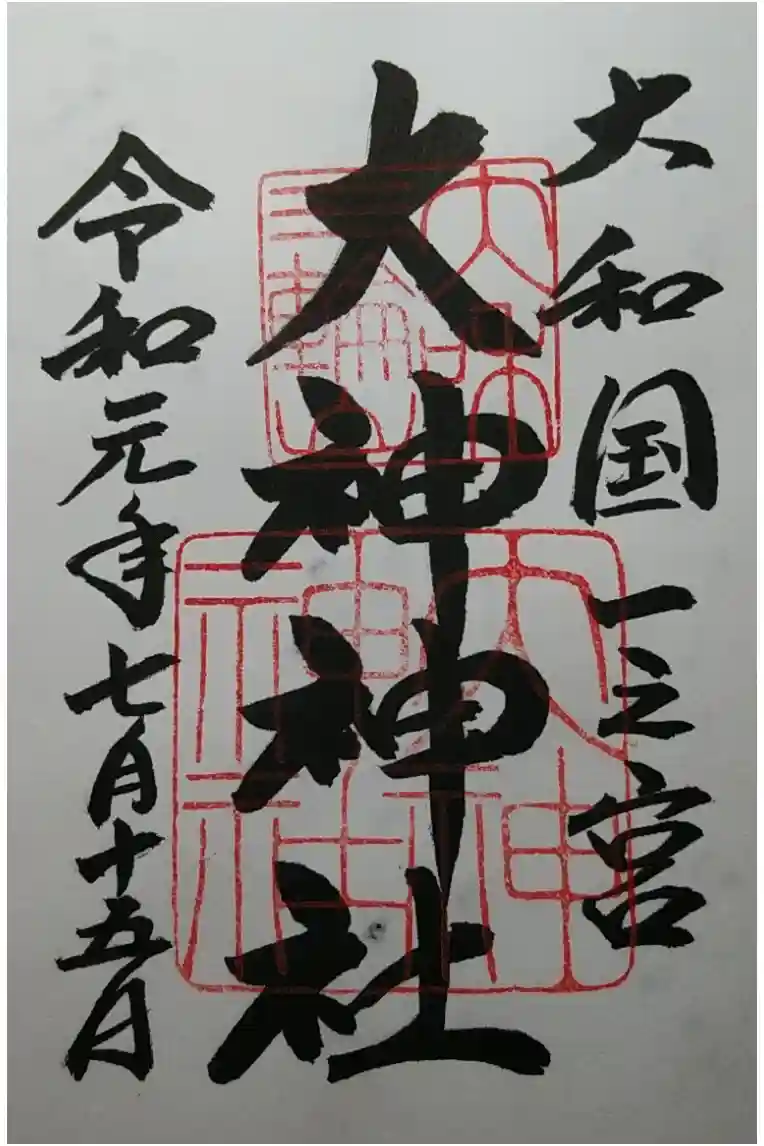 大和国一之宮
大神神社
令和元年七月十五日
大神神社